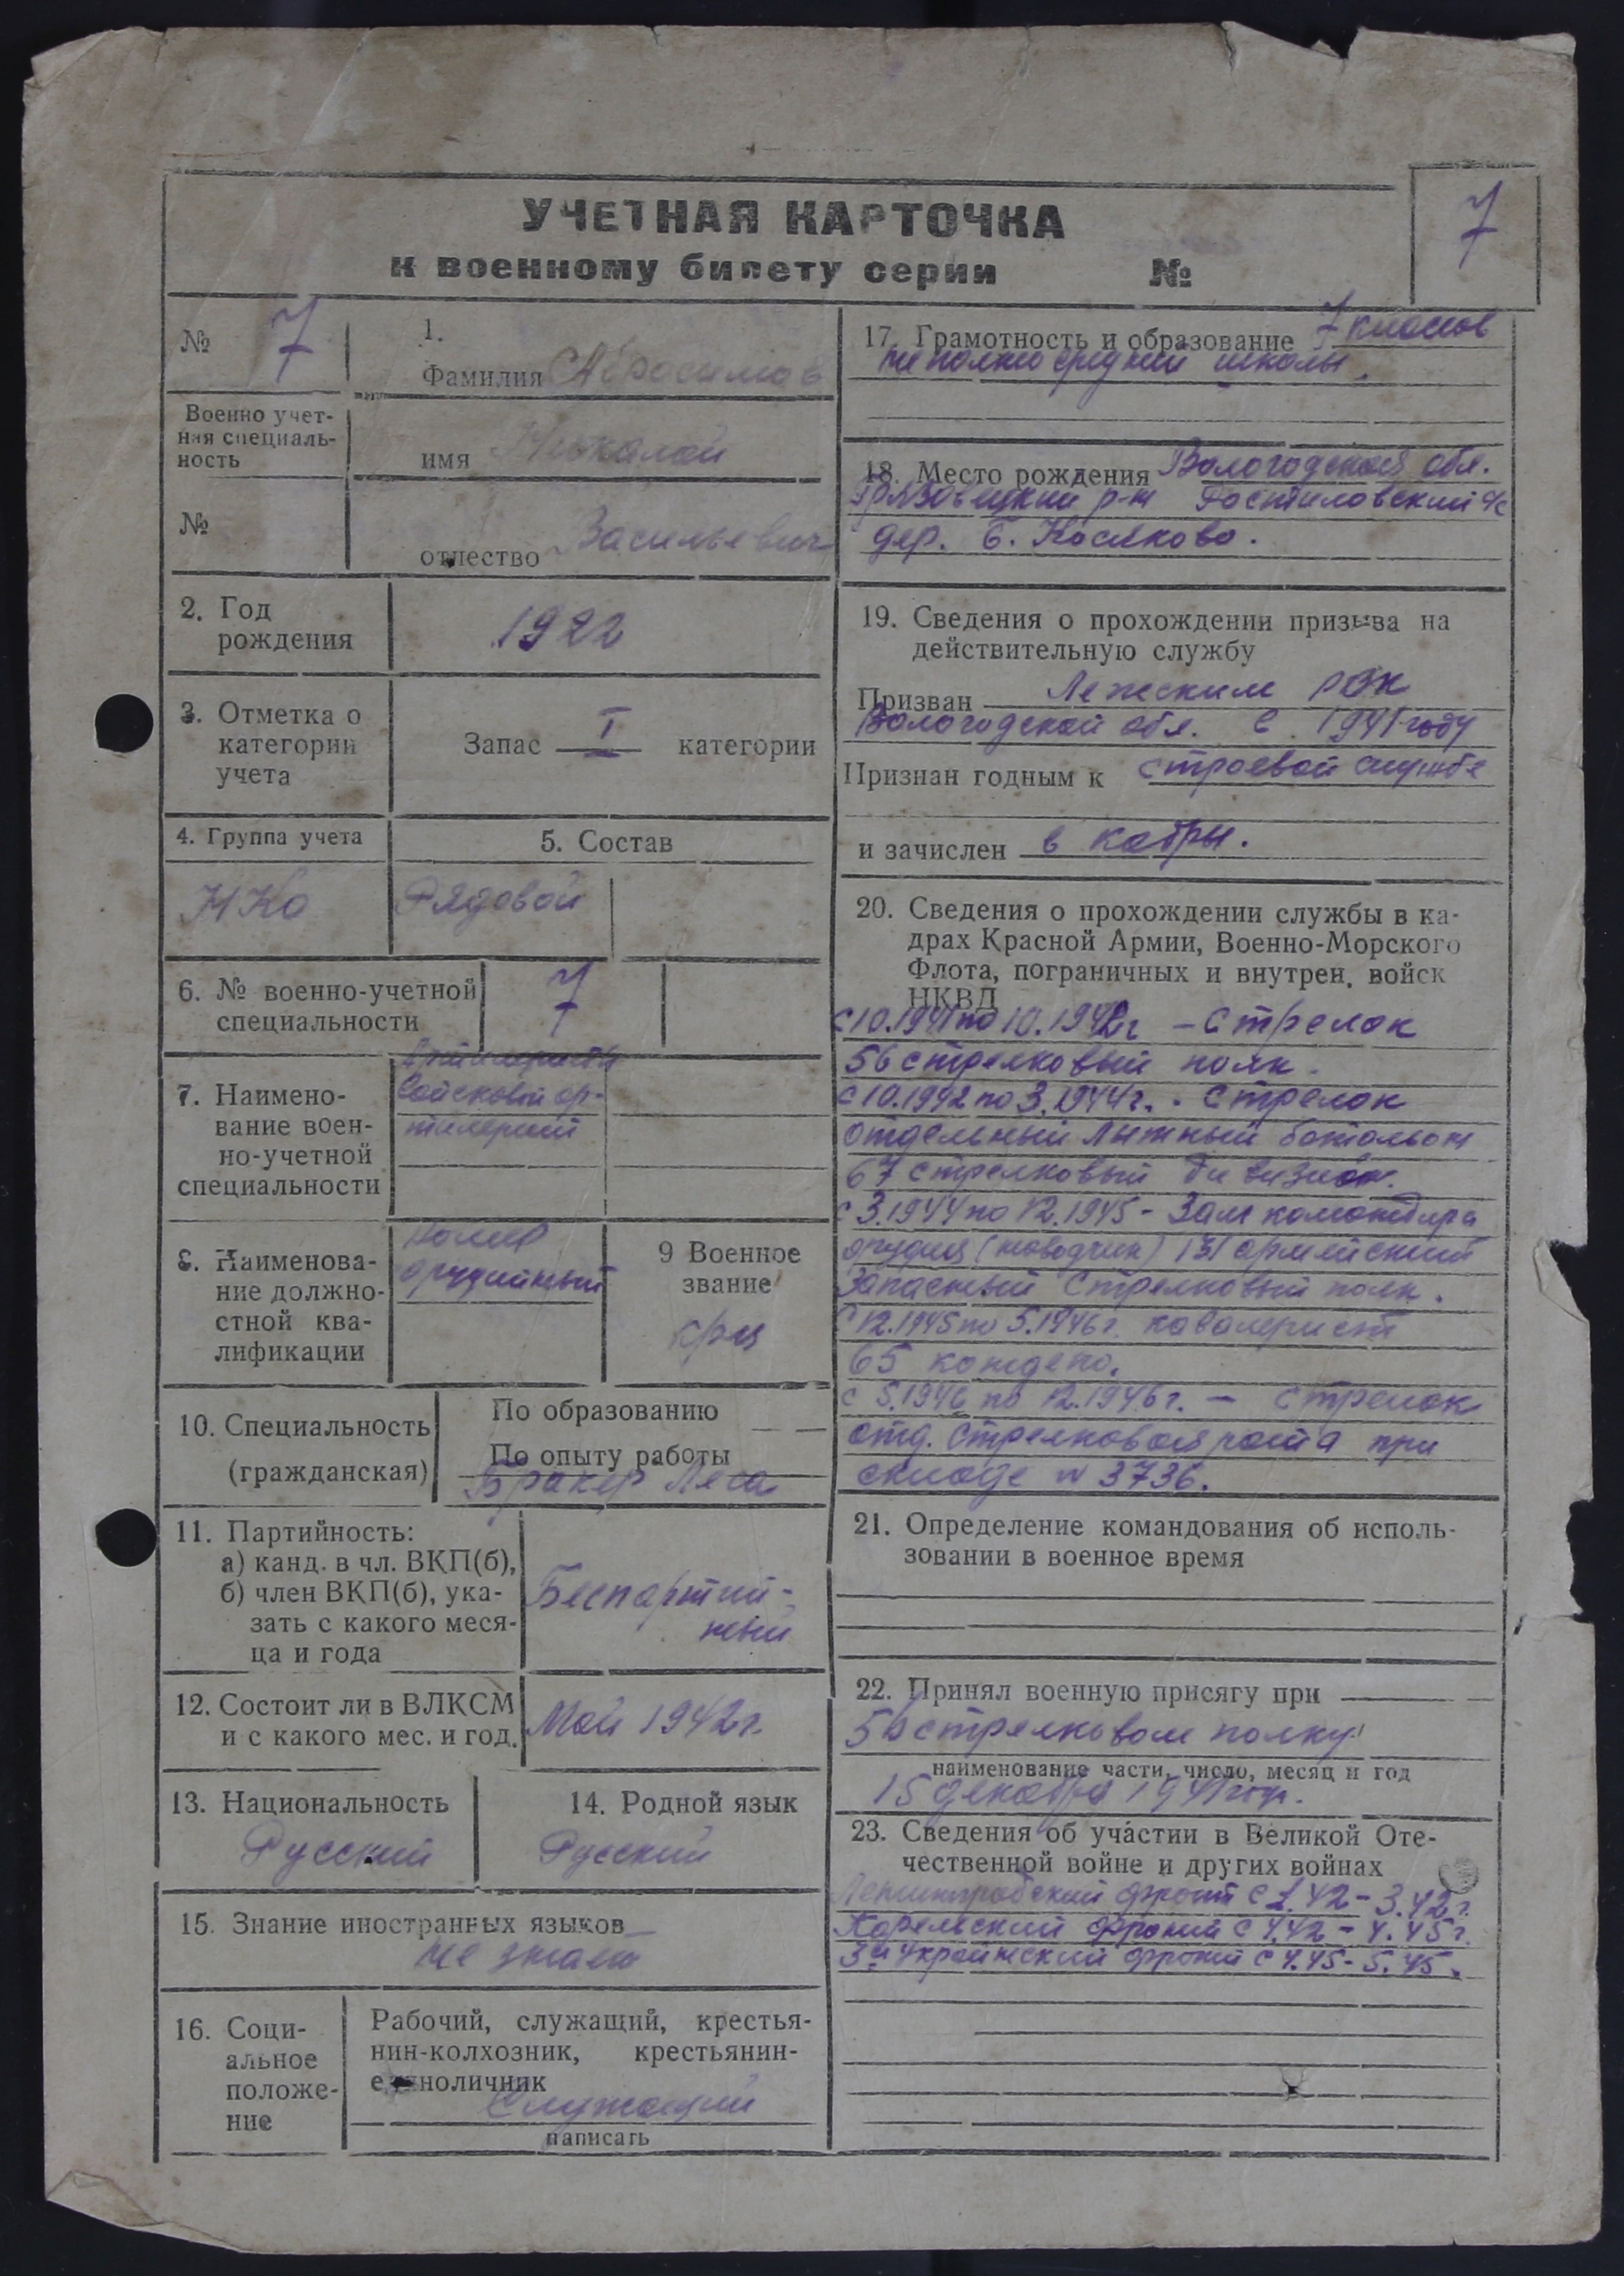 УЧЕТНАЯ КАРТОЧКА
к военному билету серии №
7
№ 7
1.
Фамилия Абросимов
Военно учет-
ная специаль-
ность
имя Николай
№
отчество Васильевич
2. Год
рождения
1922
3. Отметка о
категории
учета
Запас I категории
4. Группа учета
5. Состав
НКО
Рядовой
6. № военно-учетной
специальности
7
7. Наимено-
вание воен-
но-учетной
специальности
войсковой ар-
тилерии
8. Наименова-
ние должно-
стной ква-
лификации
Номер
орудийный
9 Военное
звание
кр-ц
10. Специальность
(гражданская)
По образованию — —
По опыту работы
Бракер Леса
11. Партийность:
а) канд. в чл. ВКП(б),
б) член ВКП(б), ука-
зать с какого меся-
ца и года
Беспартий-
ный
12. Состоит ли в ВЛКСМ
и с какого мес. и год.
Май 1942г.
13. Национальность
Русский
14. Родной язык
Русский
15. Знание иностранных языков
не знает
16. Соци-
альное
положе-
ние
Рабочий, служащий, крестья-
нин-колхозник, крестьянин-
единоличник
Служащий
написать
17. Грамотность и образование 7 классов
не полно средний школы.
18. Место рождения Вологодская обл.
Грязовецкий р-н Ростиловский с/с
дер. Б. Косиково.
19. Сведения о прохождении призыва на
действительную службу
Призван Лежским РВК
Вологодской обл. в 1941 году
Признан годным к строевой службе
и зачислен в кадры.
20. Сведения о прохождении службы в ка-
драх Красной Армии, Военно-Морского
Флота, пограничных и внутрен. войск
НКВД
с 10.1941 по 10.1942г – стрелок
56 стрелковый полк.
с 10.1942 по 3.1944г. - стрелок
отдельный лыжный батальон
67 стрелковый дивизион.
с 3.1944 по 12.1945 - Зам командира
орудия (наводчик) 131 армейский
Запасный Стрелковый полк.
с 12.1945 по 5.1946г. кавалерист
65 кондепо.
с 5.1946 по 12.1946г. – стрелок
отд. Стрелковая рота при
складе № 3736.
21. Определение командования об исполь-
зовании в военное время
22. Принял военную присягу при
56 стрелковом полку
наименование части, число, месяц и год
15 декабря 1941 год.
23. Сведения об участии в Великой Оте-
чественной войне и других войнах
Ленинградский фронт с 1.42 – 3.42г.
Карельский фронт с 4.42 – 4.45г.
3й Украинский фронт с 4.45 - 5.45.